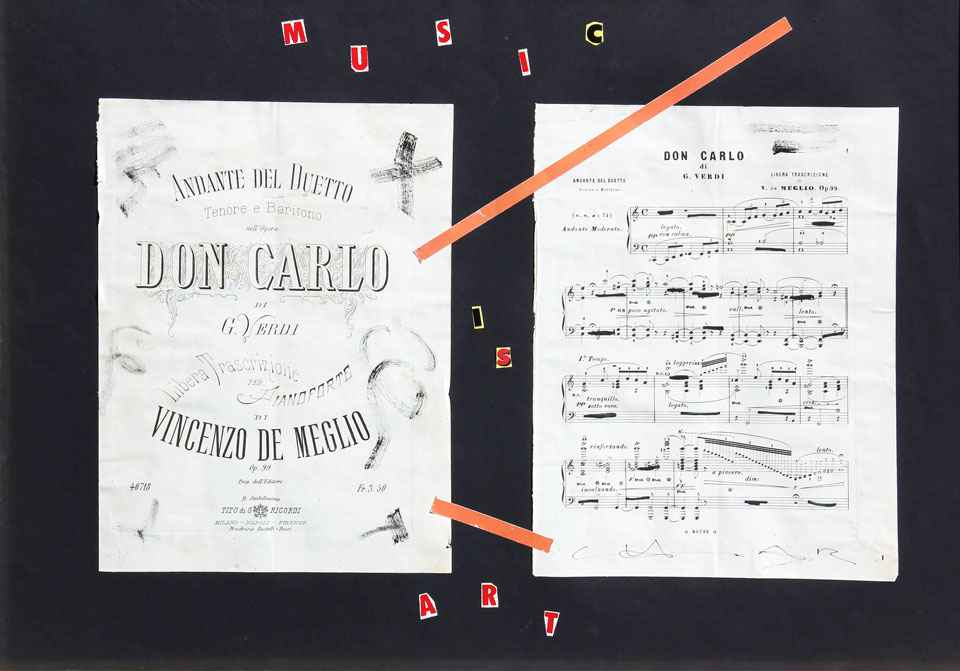 MUSIC
ANDANTE DEL DUETTO
Tenore e Baritono
nell'Opera
DON CARLO
DI
G. VERDI
Libera Trascrizione
PER
PIANOFORTE
DI
VINCENZO DE MEGLIO
Op. 99
Prop. dell'Editore
40713 Fr. 3. 50
R. Stabilimento
TITO di G. RICORDI
MILANO – NAPOLI – FIRENZE
IS
DON CARLO
di
G. VERDI
ANDANTE DEL DUETTO
Tenore e Baritono
LIBERA TRASCRIZIONE
V. DE MEGLIO. Op. 99.
Andante Moderato.
legato.
pp con calma.
un poco agitato. rall. lento.
1.º Tempo. leggeriss.
pp tranquillo.
sotto voce. legato.
rinforzando. lento.
a piacere. dim:
incalzando.
ART